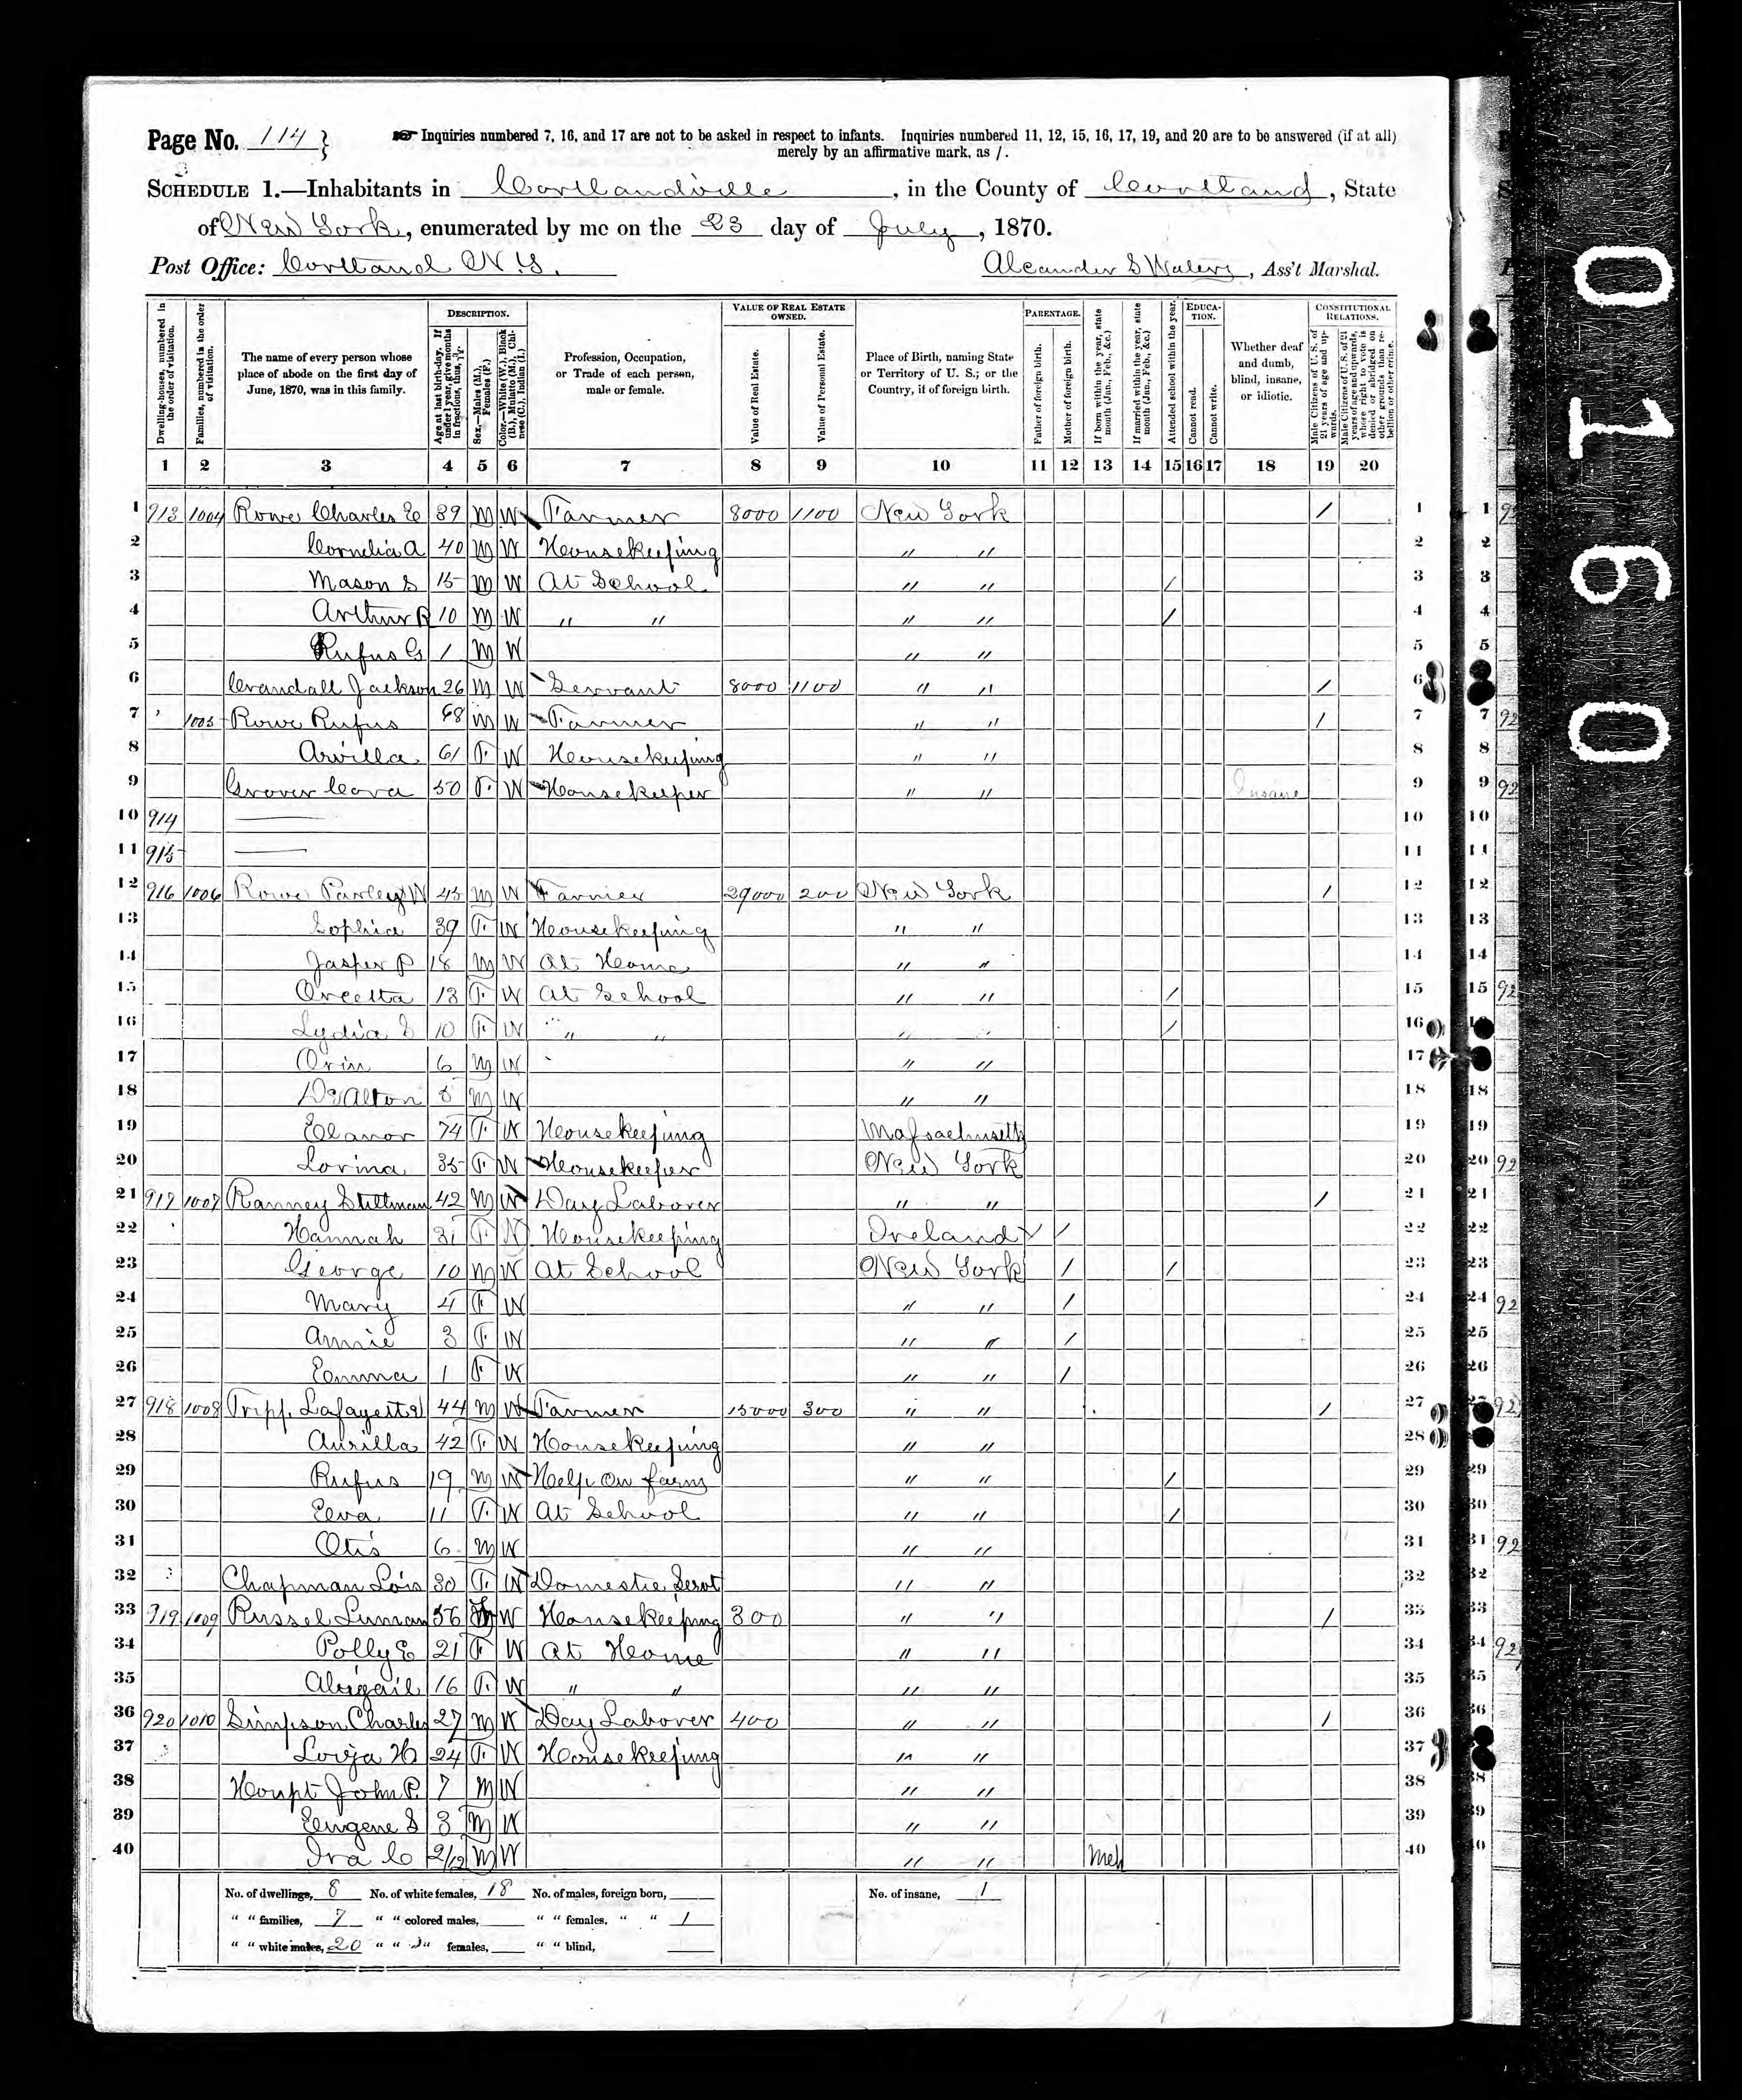 Page No. 114 }
Inquiries numbered 7, 16, and 17 are not to be asked in respect to infants. Inquiries numbered 11, 12, 15, 16, 17, 19, and 20 are to be answered (if at all)
merely by an affirmative mark, as /.
SCHEDULE 1.—Inhabitants in Cortlandville, in the County of Cortland, State
of New York, enumerated by me on the 23 day of July, 1870.
Post Office: Cortland N.Y.
Alexander S Waters, Ass't Marshal.
Dwelling-houses, numbered in the order of visitation.
Families, numbered in the order of visitation.
The name of every person whose place of abode on the first day of June, 1870, was in this family.
DESCRIPTION.
Age at last birth-day. If under 1 year, give months in fractions, thus, 3/12.
Sex.—Males (M.), Females (F.)
Color.—White (W.), Black (B.), Mulatto (M.), Chinese (C.), Indian (I.)
Profession, Occupation, or Trade of each person, male or female.
VALUE OF REAL ESTATE OWNED.
Value of Real Estate.
Value of Personal Estate.
Place of Birth, naming State or Territory of U. S.; or the Country, if of foreign birth.
PARENTAGE.
Father of foreign birth.
Mother of foreign birth.
If born within the year, state month (Jan., Feb., &c.)
If married within the year, state month (Jan., Feb., &c.)
Attended school within the year.
EDUCATION.
Cannot read.
Cannot write.
Whether deaf and dumb, blind, insane, or idiotic.
CONSTITUTIONAL RELATIONS.
Male Citizens of U. S. of 21 years of age and upwards.
Male Citizens of U. S. of 21 years of age and upwards, whose right to vote is denied or abridged on other grounds than rebellion or other crime.
1 2 3 4 5 6 7 8 9 10 11 12 13 14 15 16 17 18 19 20
1 913 1004 Rowe Charles E 39 M W Farmer 8000 1100 New York / 1
2 Cornelia A 40 M W Housekeeping " " 2
3 Mason S 15 M W At School " " / 3
4 Arthur R 10 M W " " " " / 4
5 Rufus G 1 M W " " 5
6 Crandall Jackson 26 M W Servant 8000 1100 " " / 6
7 1005 Rowe Rufus 68 M W Farmer " " / 7
8 Arvilla 61 F W Housekeeping " " 8
9 Grover Cora 50 F W Housekeeper " " Insane 9
10 914 — 10
11 915 — 11
12 916 1006 Rowe Parley W 45 M W Farmer 29000 200 New York / 12
13 Sophia 39 F W Housekeeping " " 13
14 Jasper P 18 M W At Home " " 14
15 Orcelta 13 F W At School " " / 15
16 Lydia E 10 F W " " " " / 16
17 Orin 6 M W " " 17
18 DeAlton 5 M W " " 18
19 Elanor 74 F W Housekeeping Massachusetts 19
20 Lorina 35 F W Housekeeper New York 20
21 917 1007 Ranney Stillman 42 M W Day Laborer " " / 21
22 Hannah 31 F W Housekeeping Ireland / / 22
23 George 10 M W At School New York / / 23
24 Mary 4 F W " " / 24
25 Annie 3 F W " " / 25
26 Emma 1 F W " " / 26
27 918 1008 Tripp Lafayette 44 M W Farmer 15000 300 " " / 27
28 Aurilla 42 F W Housekeeping " " 28
29 Rufus 19 M W Help on farm " " / 29
30 Eva 11 F W At School " " / 30
31 Otis 6 M W " " 31
32 Chapman Lois 30 F W Domestic Servt " " 32
33 919 1009 Russel Luman 56 M W Housekeeping 300 " " / 33
34 Polly E 21 F W At Home " " 34
35 Abigail 16 F W " " " " 35
36 920 1010 Simpson Charles 27 M W Day Laborer 400 " " / 36
37 Loiza H 24 F W Housekeeping " " 37
38 Houpt John P. 7 M W " " 38
39 Eugene S 3 M W " " 39
40 Ira C 2/12 M W " " Mch 40
No. of dwellings, 8 No. of white females, 18 No. of males, foreign born, No. of insane, 1
" " families, 7 " " colored males, " " females, " " 1
" " white males, 20 " " " females, " " blind,
0160